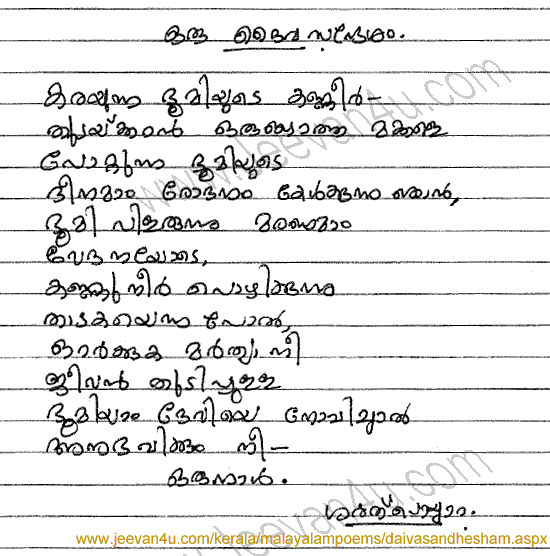 ഒരു ദൈവ സന്ദേശം.
കരയുന്ന ഭൂമിയുടെ കണ്ണീർ-
തുടയ്ക്കാൻ ഒരുങ്ങാത്ത മക്കളെ
പോറ്റുന്ന ഭൂമിയുടെ
ദീനമാം രോദനം കേൾക്കുന്നു ഞാൻ,
ഭൂമി പിളരുന്നു മരണമാം
വേദനയോടെ,
കണ്ണുനീർ പൊഴിക്കുന്നു
താടകയെന്ന പോൽ,
ഓർക്കുക മർത്യാ നീ
ജീവൻ തുടിപ്പുള്ള
ഭൂമിയാം ദേവിയെ നോവിച്ചാൽ
അനുഭവിക്കും നീ-
ഒരുനാൾ.
ശരത്
www.jeevan4u.com
www.jeevan4u.com/kerala/malayalampoems/daivasandhesham.aspx